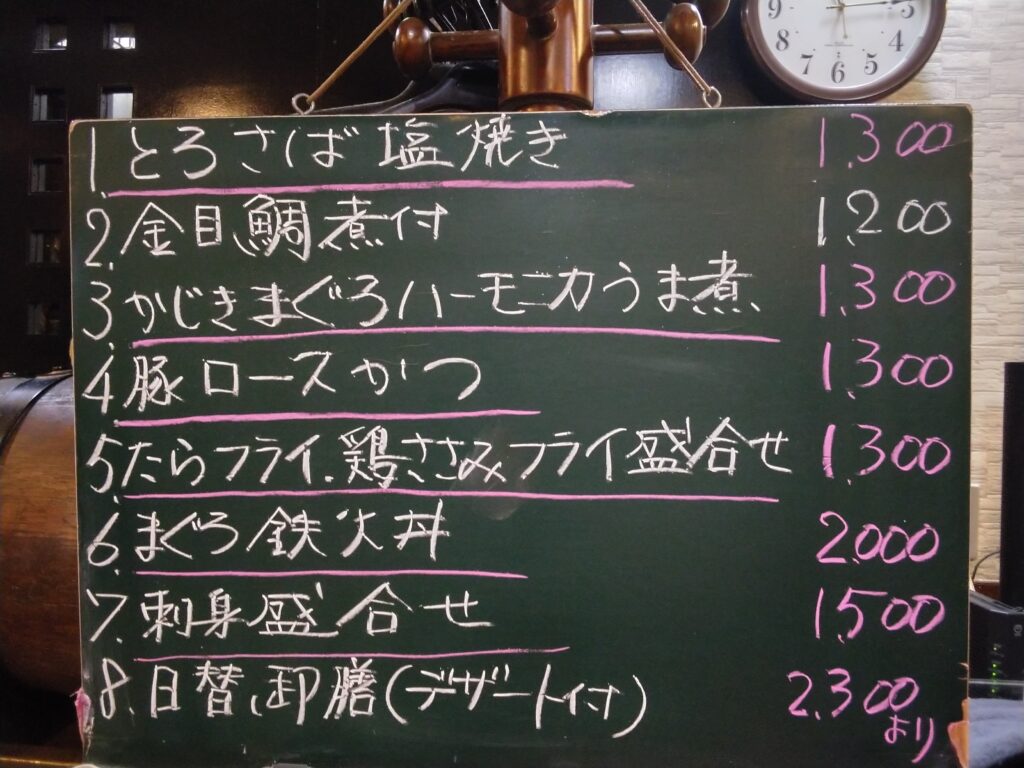 9 3 8 4 7 6 5
1. とろさば塩焼き 1,300
2. 金目鯛煮付 1,200
3. かじきまぐろハーモニカうま煮 1,300
4. 豚ロースかつ 1,300
5. たらフライ.鶏ささみフライ盛合せ 1,300
6. まぐろ鉄火丼 2,000
7. 刺身盛合せ 1,500
8. 日替御膳(デザート付) 2,300
より